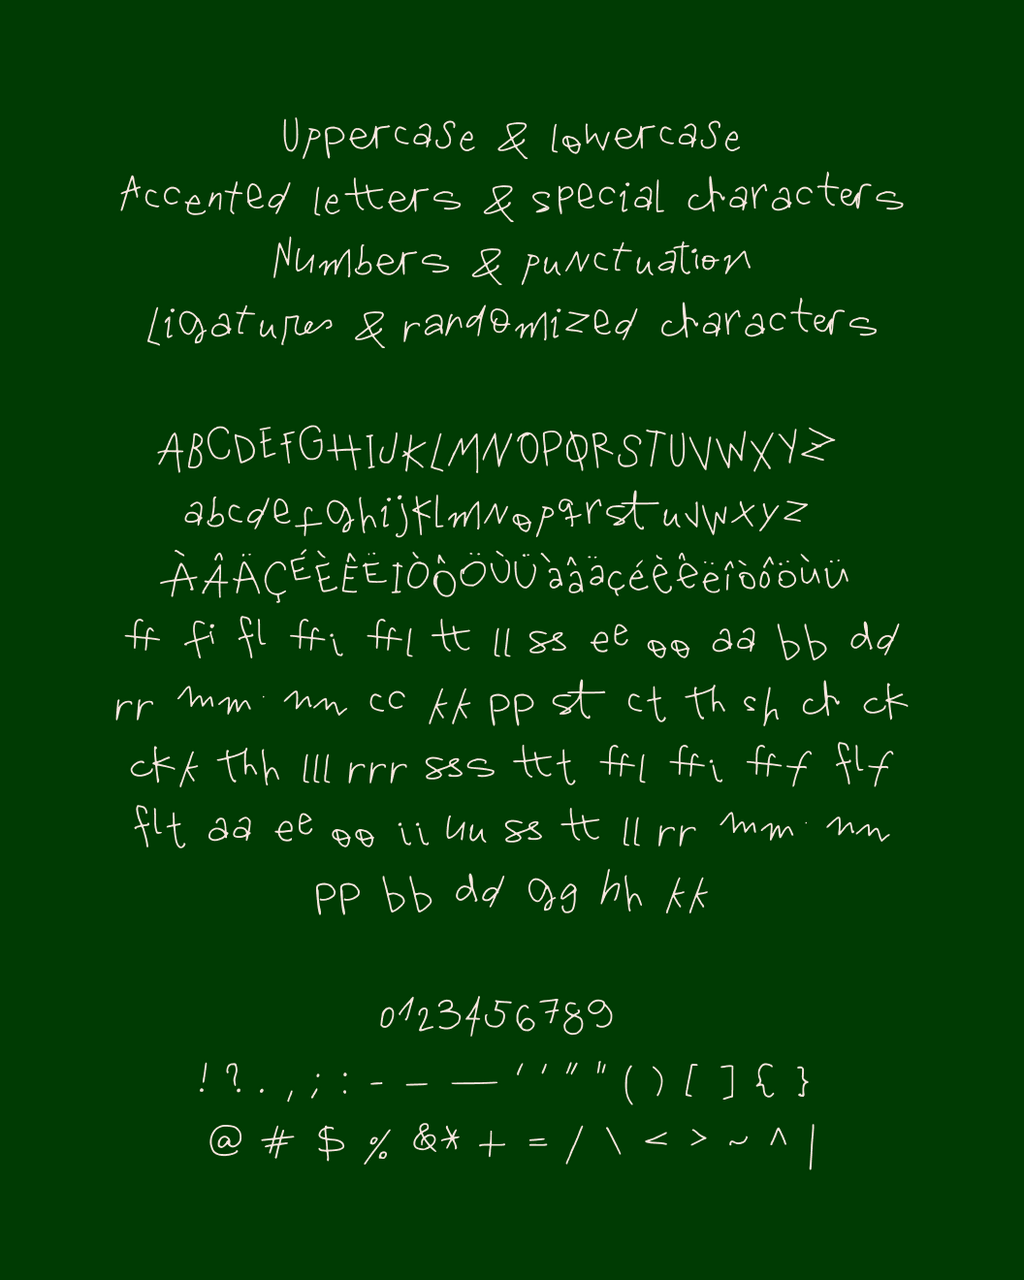 Uppercase & lowercase
Accented letters & special characters
Numbers & punctuation
Ligatures & randomized characters
ABCDEFGHIJKLMNOPQRSTUVWXYZ
abcdefghijklmnopqrstuvwxyz
ÀÂÄÇÉÈÊËIÒÔÖÙÜàâäçéèêëîòôöùü
ff fi fl ffi ffl tt ll ss ee oo aa bb dd
rr mm nn cc kk pp st ct th sh ch ck
ckk thh lll rrr sss ttt ffl ffi fff flf
flt aa ee oo ii uu ss tt ll rr mm nn
pp bb dd gg hh kk
0123456789
! ? . , ; : - – — ‘ ’ “ " ( ) [ ] { }
@ # $ % & * + = / \ < > ~ ^ |